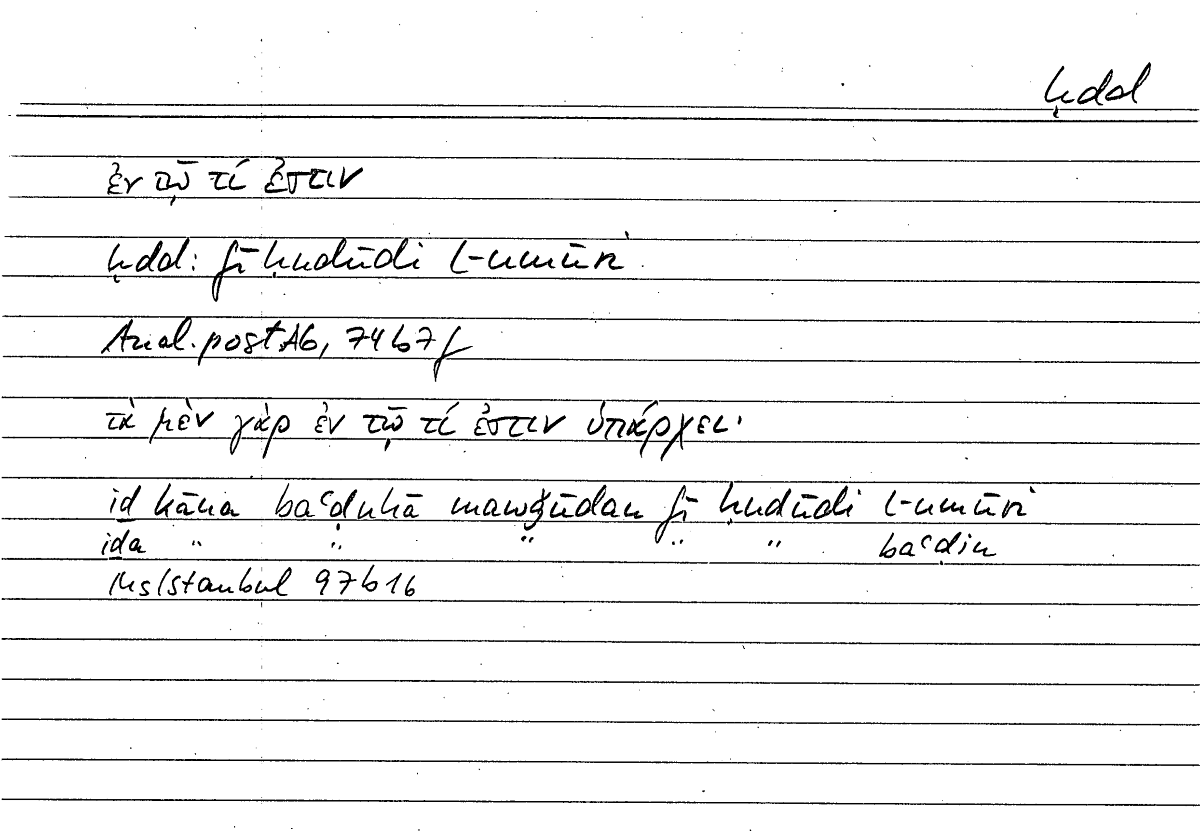 ḥdd
ἐν τῷ τί ἐστιν
ḥdd: fī ḥudūdi l-umūri
Anal. post A6, 74b7f
τὰ μὲν γὰρ ἐν τῷ τί ἐστιν ὑπάρχει·
iḏ kāna baʿḍuhā mawǧūdan fī ḥudūdi l-umūri
iḏa " " " " " baʿḍin
Ms Istanbul 97b16